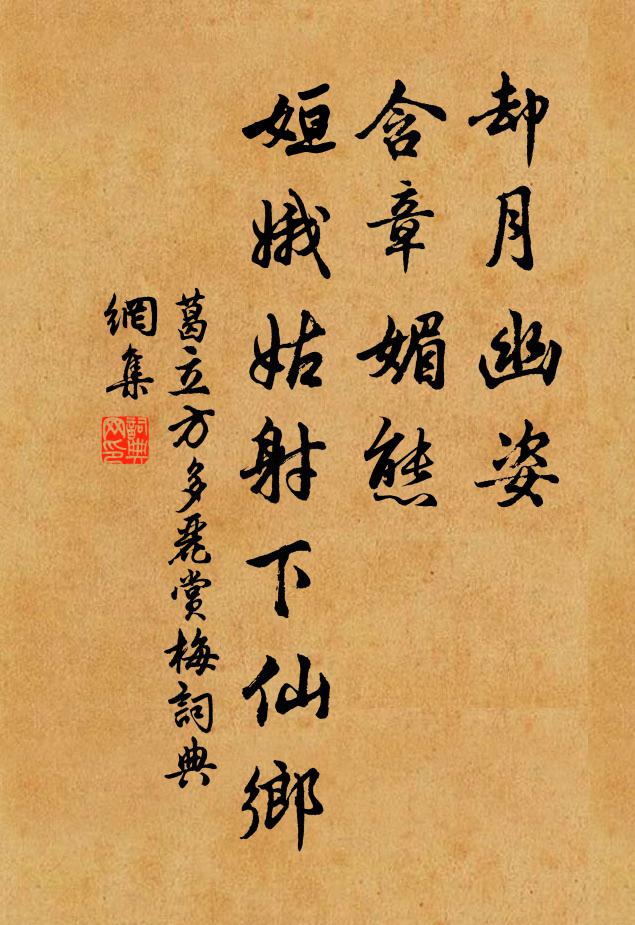 却月幽姿
含章媚態
姮娥姑射下仙鄉
葛立方多麗賞梅詞典
網集
詞典
网印